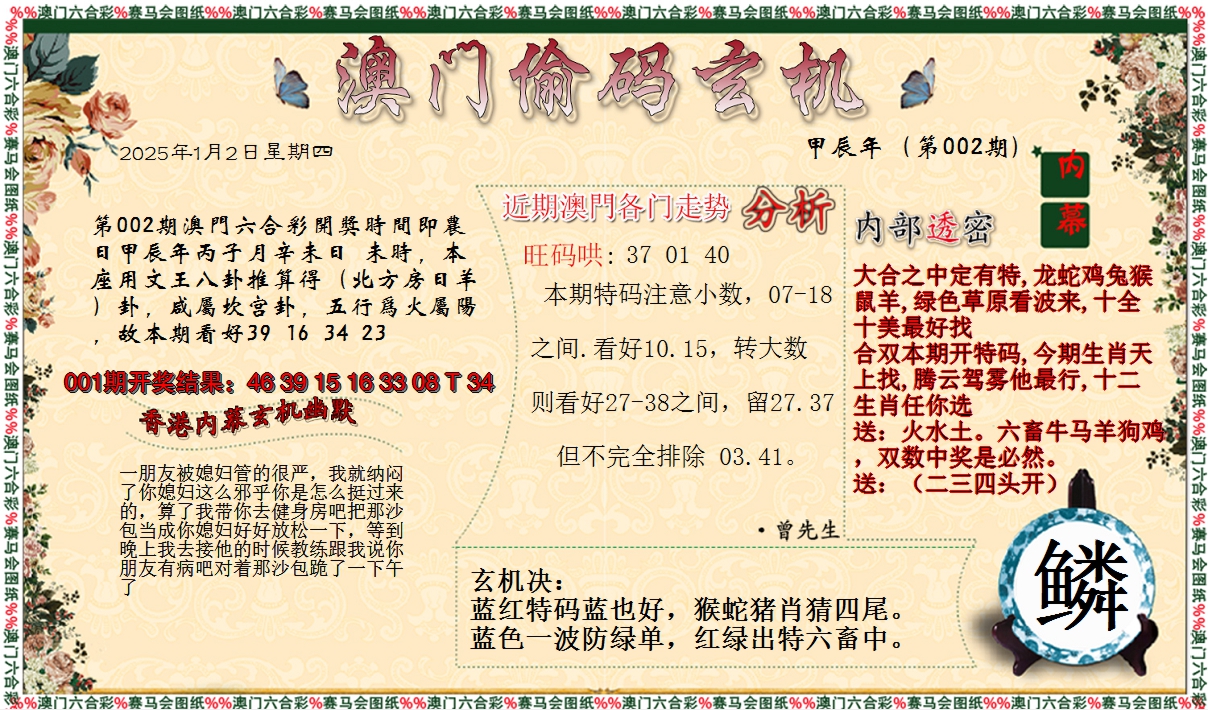 %%澳门六合彩%赛马会图纸%%澳门六合彩%赛马会图纸%%澳门六合彩%赛马会图纸%%澳门六合彩%赛马会图纸%%澳门六合彩%赛马会图纸%%澳门六合彩%赛马会图纸%%
澳门偷码玄机
2025年1月2日星期四
甲辰年（第002期）
内
幕
第002期澳門六合彩開獎時間即農
日甲辰年丙子月辛未日 未時，本
座用文王八卦推算得（北方房日羊
）卦，咸屬坎宫卦，五行爲火屬陽
，故本期看好39 16 34 23
001期开奖结果：46 39 15 16 33 08 T 34
香港内幕玄机幽默
一朋友被媳妇管的很严，我就纳闷
了你媳妇这么邪乎你是怎么挺过来
的，算了我带你去健身房吧把那沙
包当成你媳妇好好放松一下，等到
晚上我去接他的时候教练跟我说你
朋友有病吧对着那沙包跪了一下午
了
近期澳門各门走势 分析
旺码哄: 37 01 40
本期特码注意小数，07-18
之间.看好10.15，转大数
则看好27-38之间，留27.37
但不完全排除 03.41。
·曾先生
内部透密
大合之中定有特,龙蛇鸡兔猴
鼠羊,绿色草原看波来,十全
十美最好找
合双本期开特码,今期生肖天
上找,腾云驾雾他最行,十二
生肖任你选
送：火水土。六畜牛马羊狗鸡
，双数中奖是必然。
送：（二三四头开）
玄机决：
蓝红特码蓝也好，猴蛇猪肖猜四尾。
蓝色一波防绿单，红绿出特六畜中。
鳞
%%澳门六合彩%赛马会图纸%%澳门六合彩%赛马会图纸%%澳门六合彩%赛马会图纸%%澳门六合彩%赛马会图纸%%澳门六合彩%赛马会图纸%%澳门六合彩%赛马会图纸%%